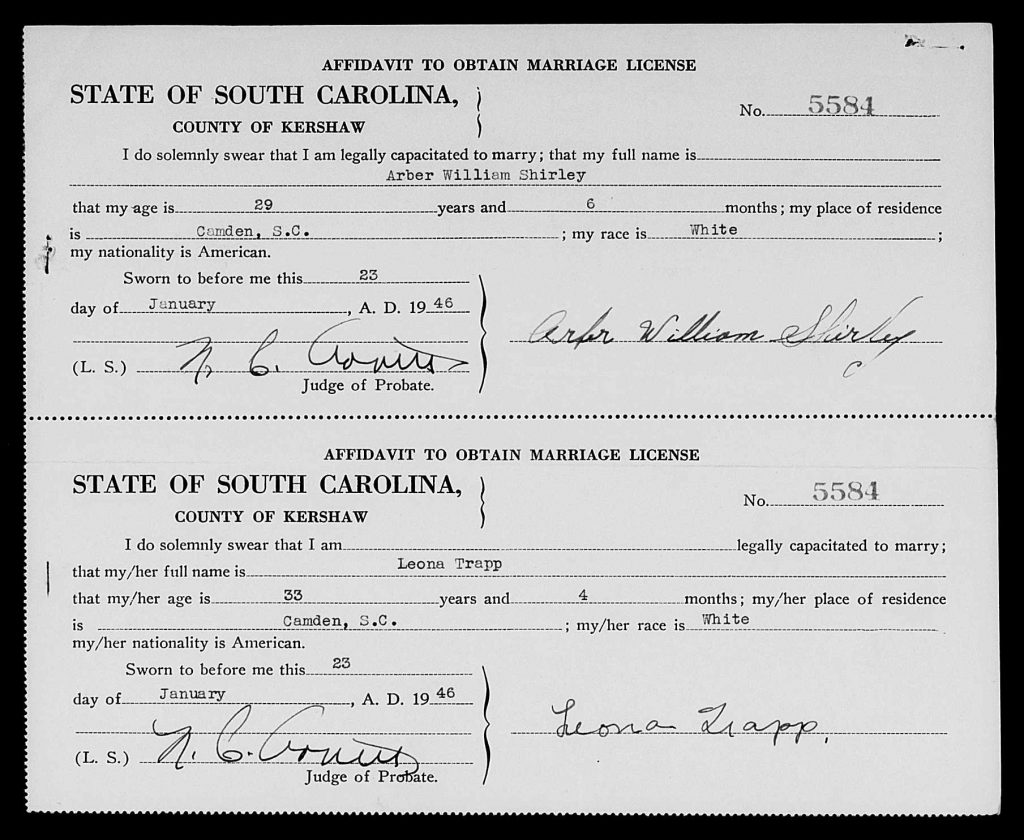 AFFIDAVIT TO OBTAIN MARRIAGE LICENSE
STATE OF SOUTH CAROLINA,
COUNTY OF KERSHAW
No. 5584
I do solemnly swear that I am legally capacitated to marry; that my full name is
Arber William Shirley
that my age is 29 years and 6 months; my place of residence
is Camden, S.C. ; my race is White ;
my nationality is American.
Sworn to before me this 23
day of January, A. D. 19 46
Arber William Shirley
(L. S.) N. C.
Judge of Probate.
AFFIDAVIT TO OBTAIN MARRIAGE LICENSE
STATE OF SOUTH CAROLINA,
COUNTY OF KERSHAW
No. 5584
I do solemnly swear that I am legally capacitated to marry;
that my/her full name is Leona Trapp
that my/her age is 33 years and 4 months; my/her place of residence
is Camden, S.C. ; my/her race is White
my/her nationality is American.
Sworn to before me this 23
day of January, A. D. 19 46
Leona Trapp.
(L. S.) N. C.
Judge of Probate.